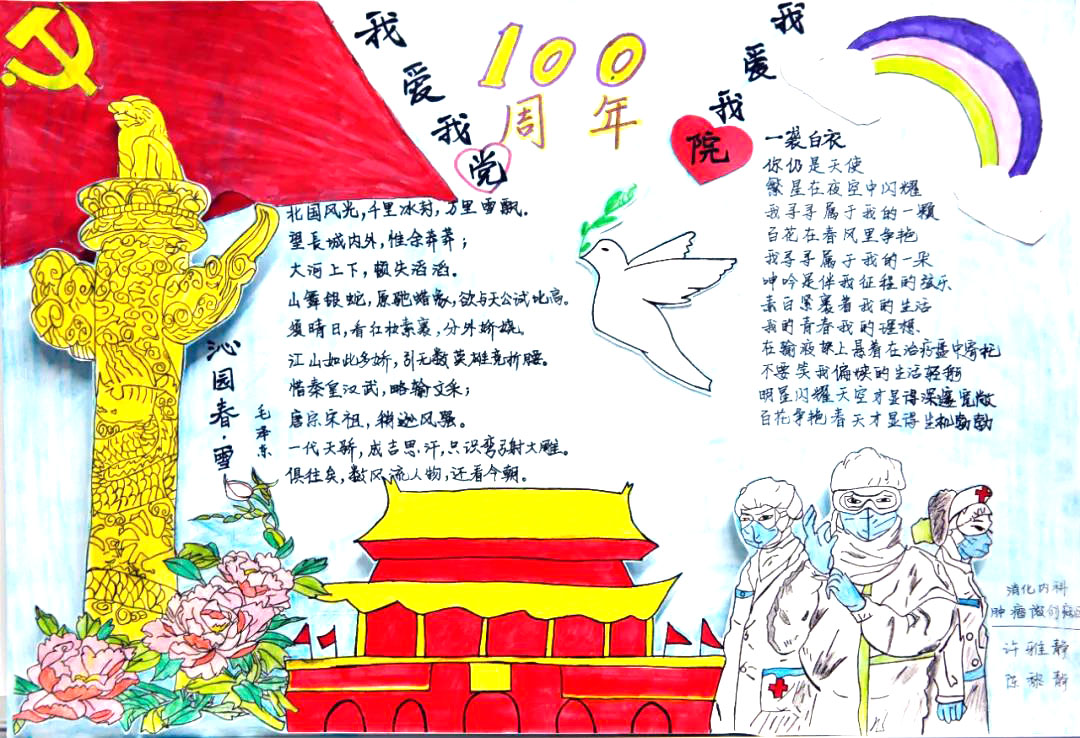 我爱我党
100
周年
我爱我院
沁园春·雪
毛泽东
北国风光,千里冰封,万里雪飘。
望长城内外,惟余莽莽;
大河上下,顿失滔滔。
山舞银蛇,原驰蜡象,欲与天公试比高。
须晴日,看红装素裹,分外妖娆。
江山如此多娇,引无数英雄竞折腰。
惜秦皇汉武,略输文采;
唐宗宋祖,稍逊风骚。
一代天骄,成吉思汗,只识弯弓射大雕。
俱往矣,数风流人物,还看今朝。
一袭白衣
你仍是天使
繁星在夜空中闪耀
我寻寻属于我的一颗
百花在春风里争艳
我寻寻属于我的一朵
呻吟是伴我征程的弦乐
素白紧裹着我的生活
我的青春我的理想
在输液架上悬着在治疗盘中寄托
不要笑我偏狭的生活轻
明星闪耀天空才显得深邃宽敞
百花争艳春天才显得生机勃勃
消化内科
肿瘤微创病区
许雅静
陈黎静